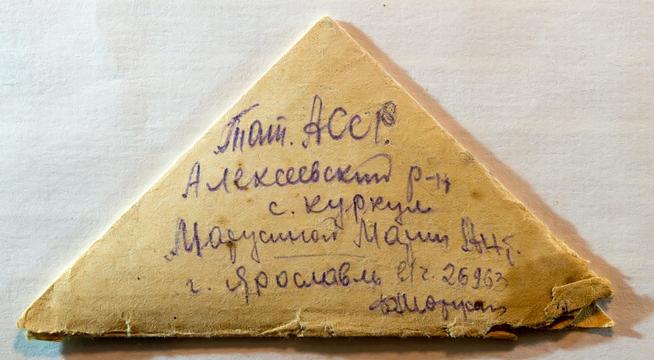 Тат. АССР.
Алексеевский р-н
с. Куркул
Марусиной Марии Ант.
г. Ярославль 26963